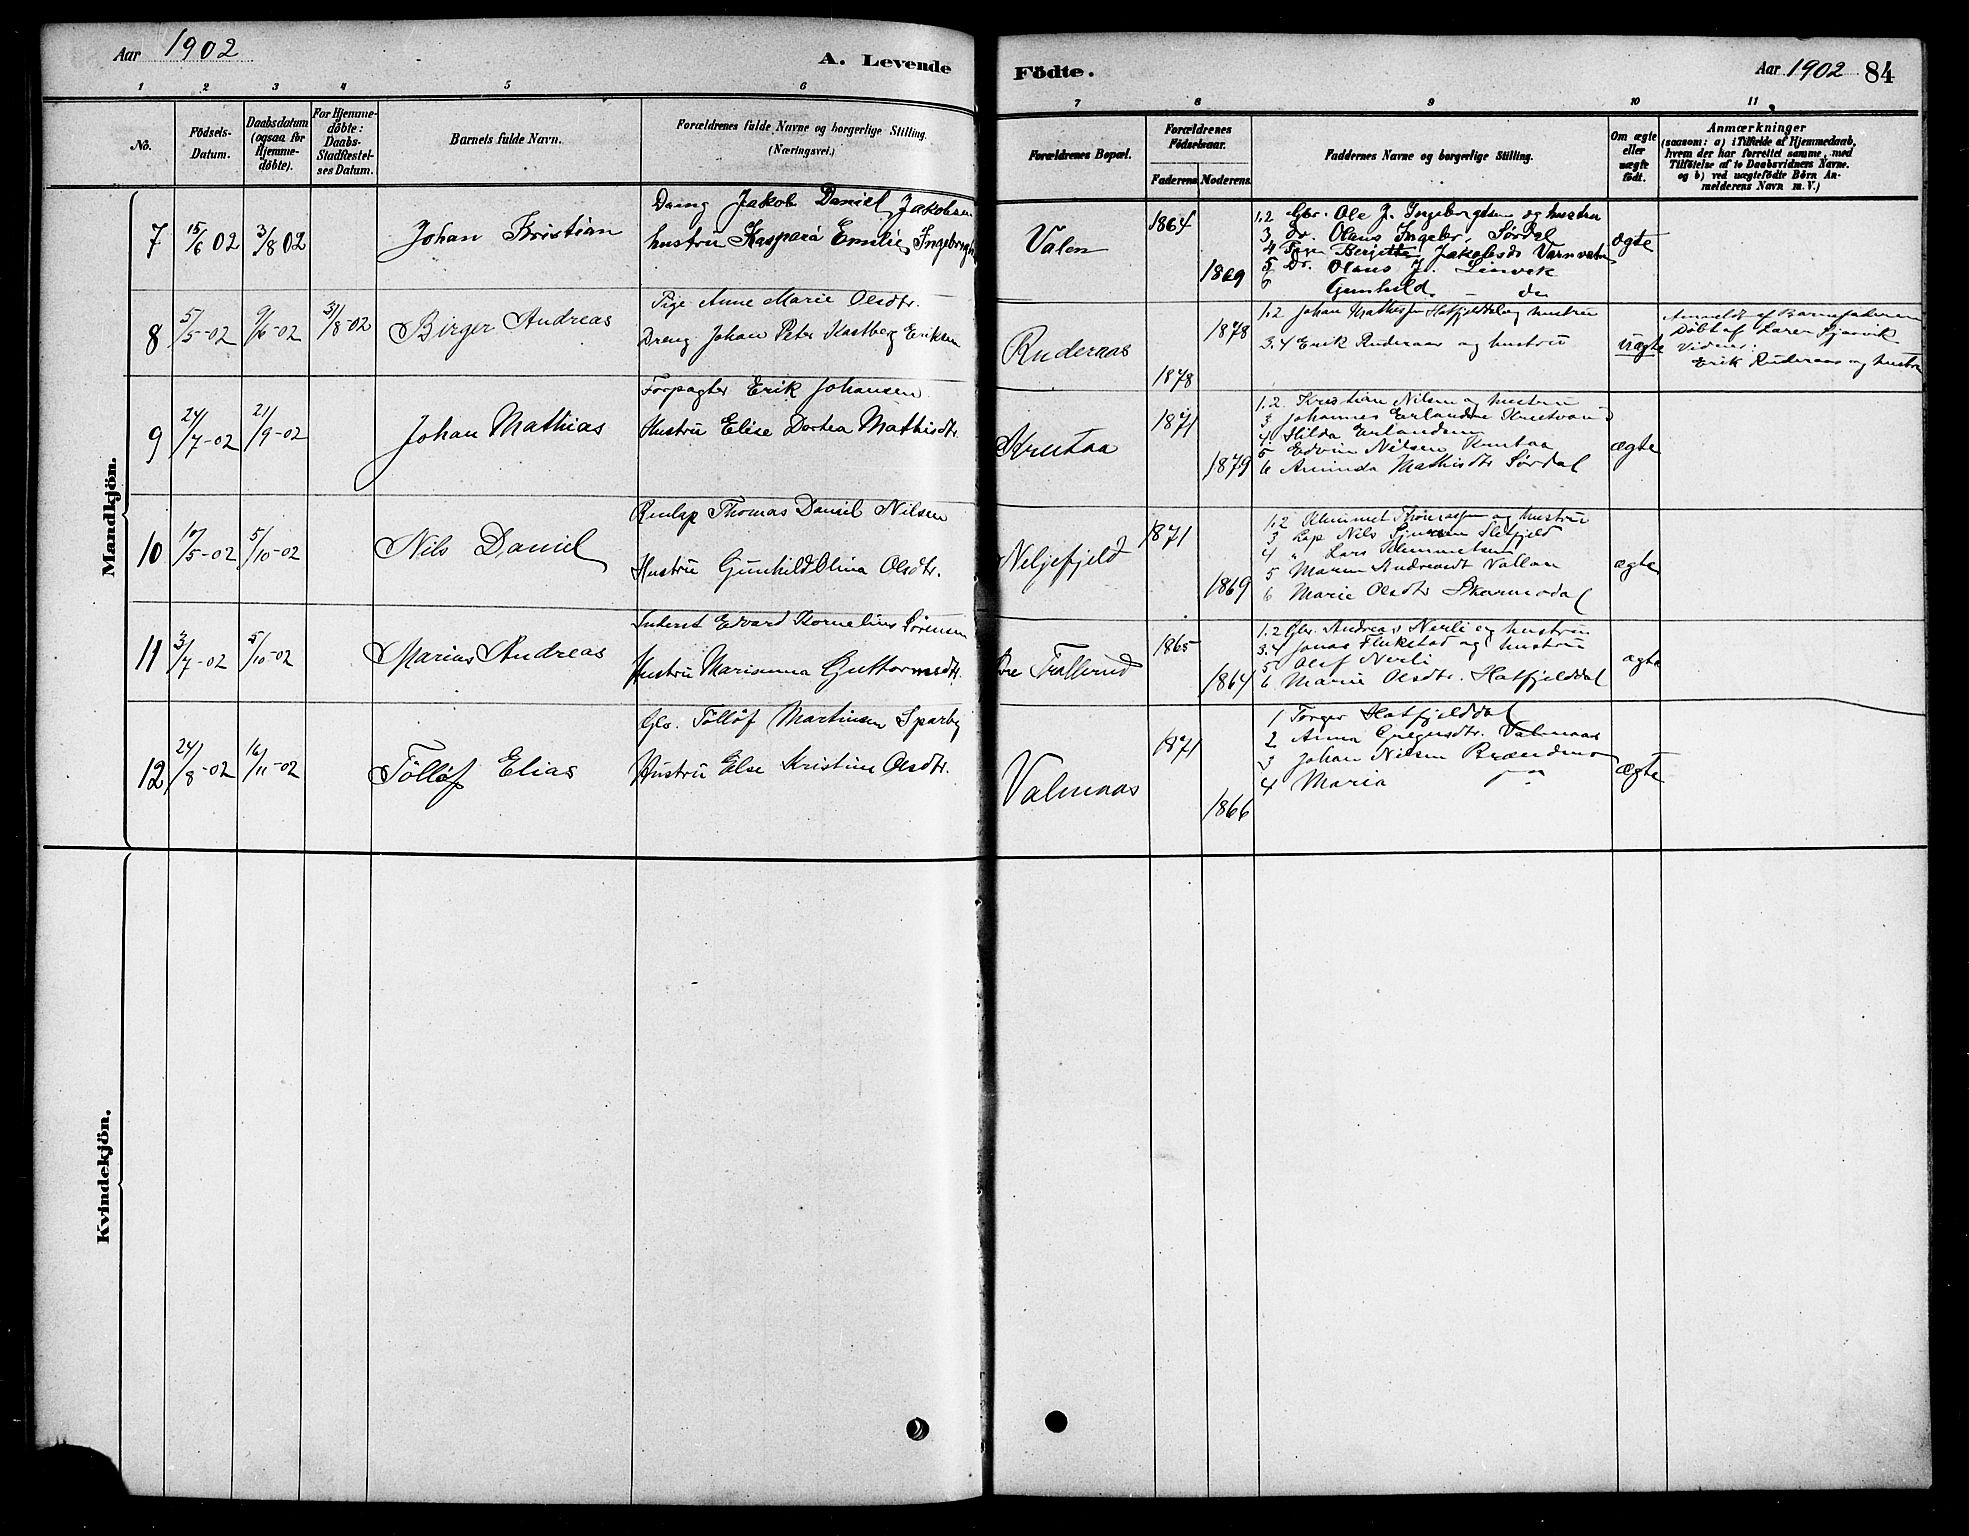 Aar 1902
A. Levende
Födte.
Aar 1902 84
1 2 3 4 5 6 7 8 9 10 11
No.
Födsels-
Datum.
Daabsdatum
(ogsaa for
Hjemme-
döbte).
For Hjemme-
döbte:
Daabs-
Stadfæstel-
ses Datum.
Barnets fulde Navn.
Forældrenes fulde Navne og borgerlige Stilling.
(Næringsvei.)
Forældrenes Bopæl.
Forældrenes
Födselsaar.
Faderens. Moderens.
Faddernes Navne og borgerlige Stilling.
Om ægte
eller
uægte
födt.
Anmærkninger
(saasom: a) i Tilfælde af Hjemmedaab,
hvem der har forrettet samme, med
Tilföielse af to Daabsvidners Navne.
og b) ved uægtefödte Börn An-
melderens Navn m. V.)
Mandkjön.
7 15/6 02 3/8 02
Johan Kristian
Jakob Daniel Jakobsen
hustru Kaspara Emilie
Valen
1864
1869
1.2 Gbr. Ole J. Ingebrigtsen og hustru
3 Dr. Olaus Ingebr. Sørdal
4 Pige Bergitte Jakobsd.
5 Dr. Olaus J.
6 Gunhild — do
ægte
8 5/5-02 9/6-02 31/8-02
Birger Andreas
Pige Anne Marie Olsdtr.
Dreng Johan Peter Eriksen
Ruderaas
1878
1878
1.2 Johan og hustru
3.4 Erik Ruderaas og hustru
uægte
Anmeldt af Barnefaderen
Døbt af
Vidner:
Erik Ruderaas og hustru
9 24/7-02 21/9-02
Johan Mathias
Forpagter Erik Johansen
Hustru Elise Dortea Mathisdtr.
Krutaa
1871
1879
1.2. Kristian Nilsen og hustru
3 Johannes
4. Hilda Erlandsen
5 Edvin Nilsen Krutaa
6 Aminda Mathisdtr Sørdal
ægte
10 5/10-02
Nils Daniel
Renlap Thomas Daniel Nilsen
Hustru Gunhild Olina Olsdtr.
1871
1869
1.2 Klemmet Thomassen og hustru
3 Lap Nils
4 " Lars Klemmetsen
5 Maren
6 Marie Olsdtr Skarmodal
ægte
11 3/7-02 5/10-02
Marius Andreas
Inderst Edvard Kornelius Sørensen
Hustru Marianna Guttormsdtr.
1865
1864
1.2 Gbr. Andreas Nerli og hustru
3.4 Jonas og hustru
5 Olef Nerli
6 Marie Olsdtr. Hatfjelddal
ægte
12 24/8-02 16/11-02
Tölløf Elias
Gbr. Tölløf Martinsen Sparby
Hustru Else Kristine Olsdtr.
Valmaas
1871
1866
1 Torger Hatfjelddal
2 Anna Valmaas
3 Johan Nilsen Brændmo
4 Maria
ægte
Kvindekjön.